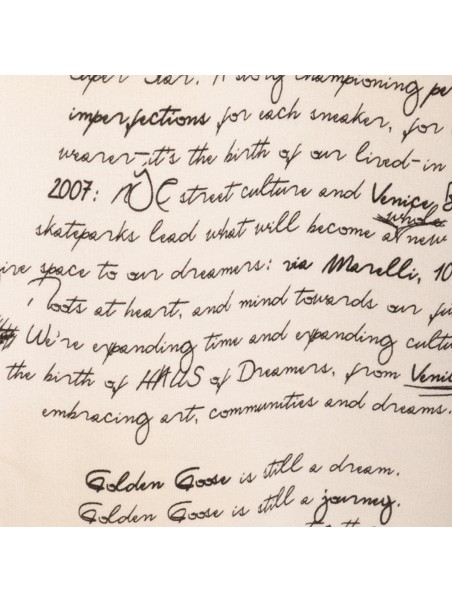 Super Star. A story championing pe
imperfections for each sneaker, for
wearer-it's the birth of our lived-in
2007: NYC street culture and Venice B
whole
skateparks lead what will become a new
ire space to our dreamers: via Marelli, 10
Roots at heart, and mind towards our fu
We're expanding time and expanding cultu
the birth of HAUS of Dreamers, from Veni
embracing art, communities and dreams.
Golden Goose is still a dream.
Golden Goose is still a journey.